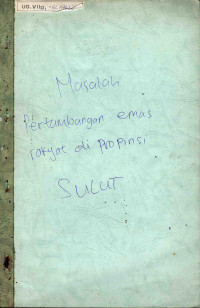 Masalah
Pertambangan emas
rakyat di Propinsi
SULUT